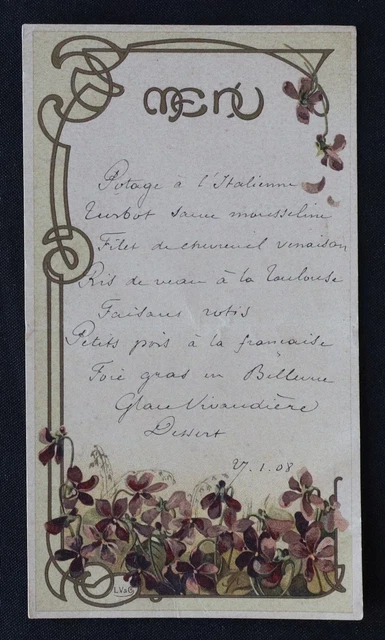 MENU
Potage à l'Italienne
Turbot sauce mousseline
Filet de chevreuil venaison
Ris de veau à la Toulouse
Faisans rotis
Petits pois à la française
Foie gras en Bellevue
Glace Vivandière
Dessert
27.1.08
L.V.&C